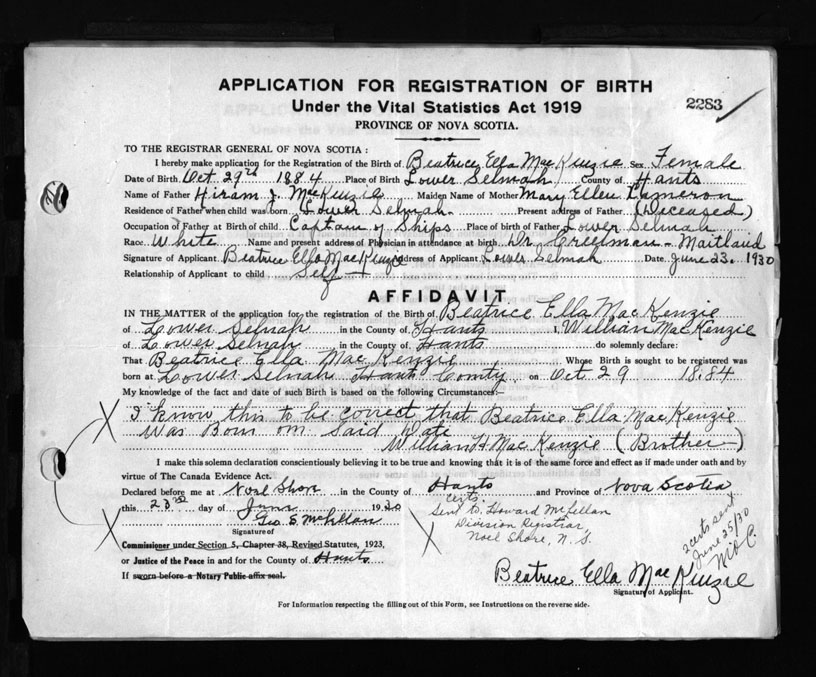 APPLICATION FOR REGISTRATION OF BIRTH
Under the Vital Statistics Act 1919
2283
PROVINCE OF NOVA SCOTIA.
TO THE REGISTRAR GENERAL OF NOVA SCOTIA :
I hereby make application for the Registration of the Birth of Beatrice Ella MacKenzie Sex Female
Date of Birth Oct 29th 1884 Place of Birth Lower Selmah County of Hants
Name of Father Hiram J. MacKenzie Maiden Name of Mother Mary Ellen Cameron
Residence of Father when child was born Lower Selmah. Present address of Father (Deceased)
Occupation of Father at Birth of child Captain of Ships Place of birth of Father Lower Selmah
Race White Name and present address of Physician in attendance at birth Dr. Creelman - Maitland
Signature of Applicant Beatrice Ella MacKenzie Address of Applicant Lower Selmah Date June 23. 1930
Relationship of Applicant to child Self
AFFIDAVIT
IN THE MATTER of the application for the registration of the Birth of Beatrice Ella MacKenzie
of Lower Selmah in the County of Hants I, William MacKenzie
of Lower Selmah in the County of Hants do solemnly declare:
That Beatrice Ella MacKenzie Whose Birth is sought to be registered was
born at Lower Selmah Hants County on Oct 29 1884
My knowledge of the fact and date of such Birth is based on the following Circumstances:—
I know this to be correct that Beatrice Ella MacKenzie
Was Born on Said Date
William H MacKenzie (Brother)
I make this solemn declaration conscientiously believing it to be true and knowing that it is of the same force and effect as if made under oath and by
virtue of The Canada Evidence Act.
Declared before me at Noel Shore in the County of Hants and Province of Nova Scotia
this 23rd day of June 1930
Geo S. McLellan
Signature of
Commissioner under Section 5, Chapter 38, Revised Statutes, 1923,
or Justice of the Peace in and for the County of Hants
If sworn before a Notary Public affix seal.
certs.
Sent to Howard McLellan
Division Registrar,
Noel Shore, N. S.
2 certs sent
June 25/30
Beatrice Ella MacKenzie
Signature of Applicant.
For Information respecting the filling out of this Form, see Instructions on the reverse side.